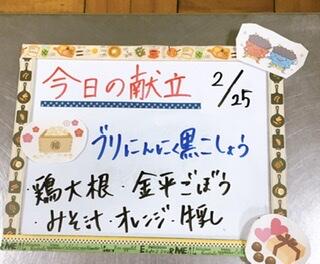 今日の献立 2/25
ブリにんにく黒こしょう
鶏大根・金平ごぼう
・みそ汁・オレンジ・牛乳